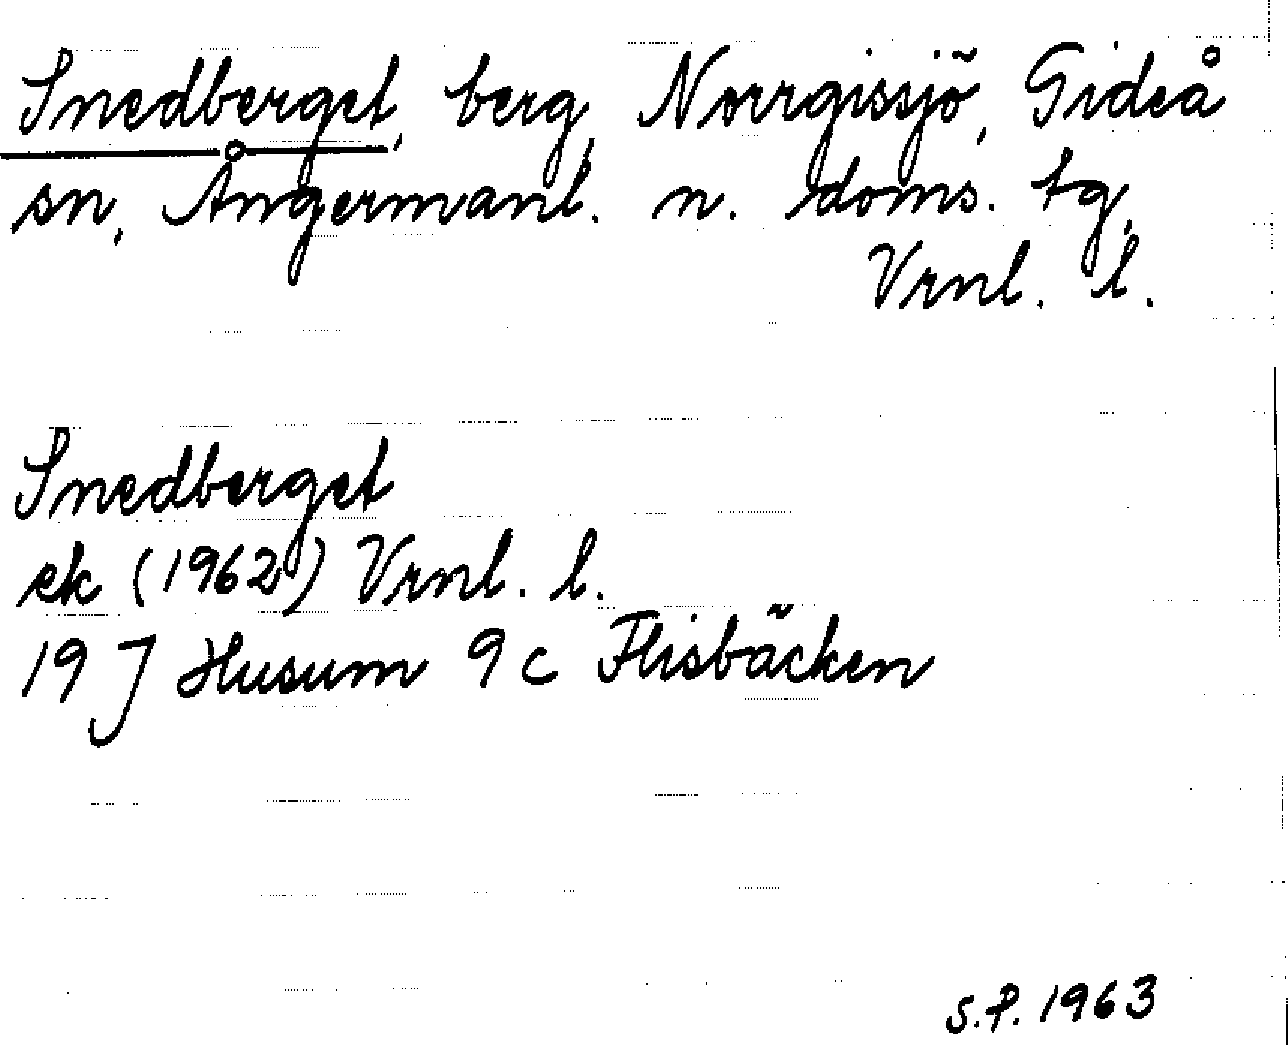 Snedberget, berg, Norrgissjö, Gideå
sn, Ångermanl. n. doms. tg,
Vrnl. l.
Snedberget
ek (1962) Vrnl. l.
19 J Husum 9c Flisbäcken
S.P. 1963